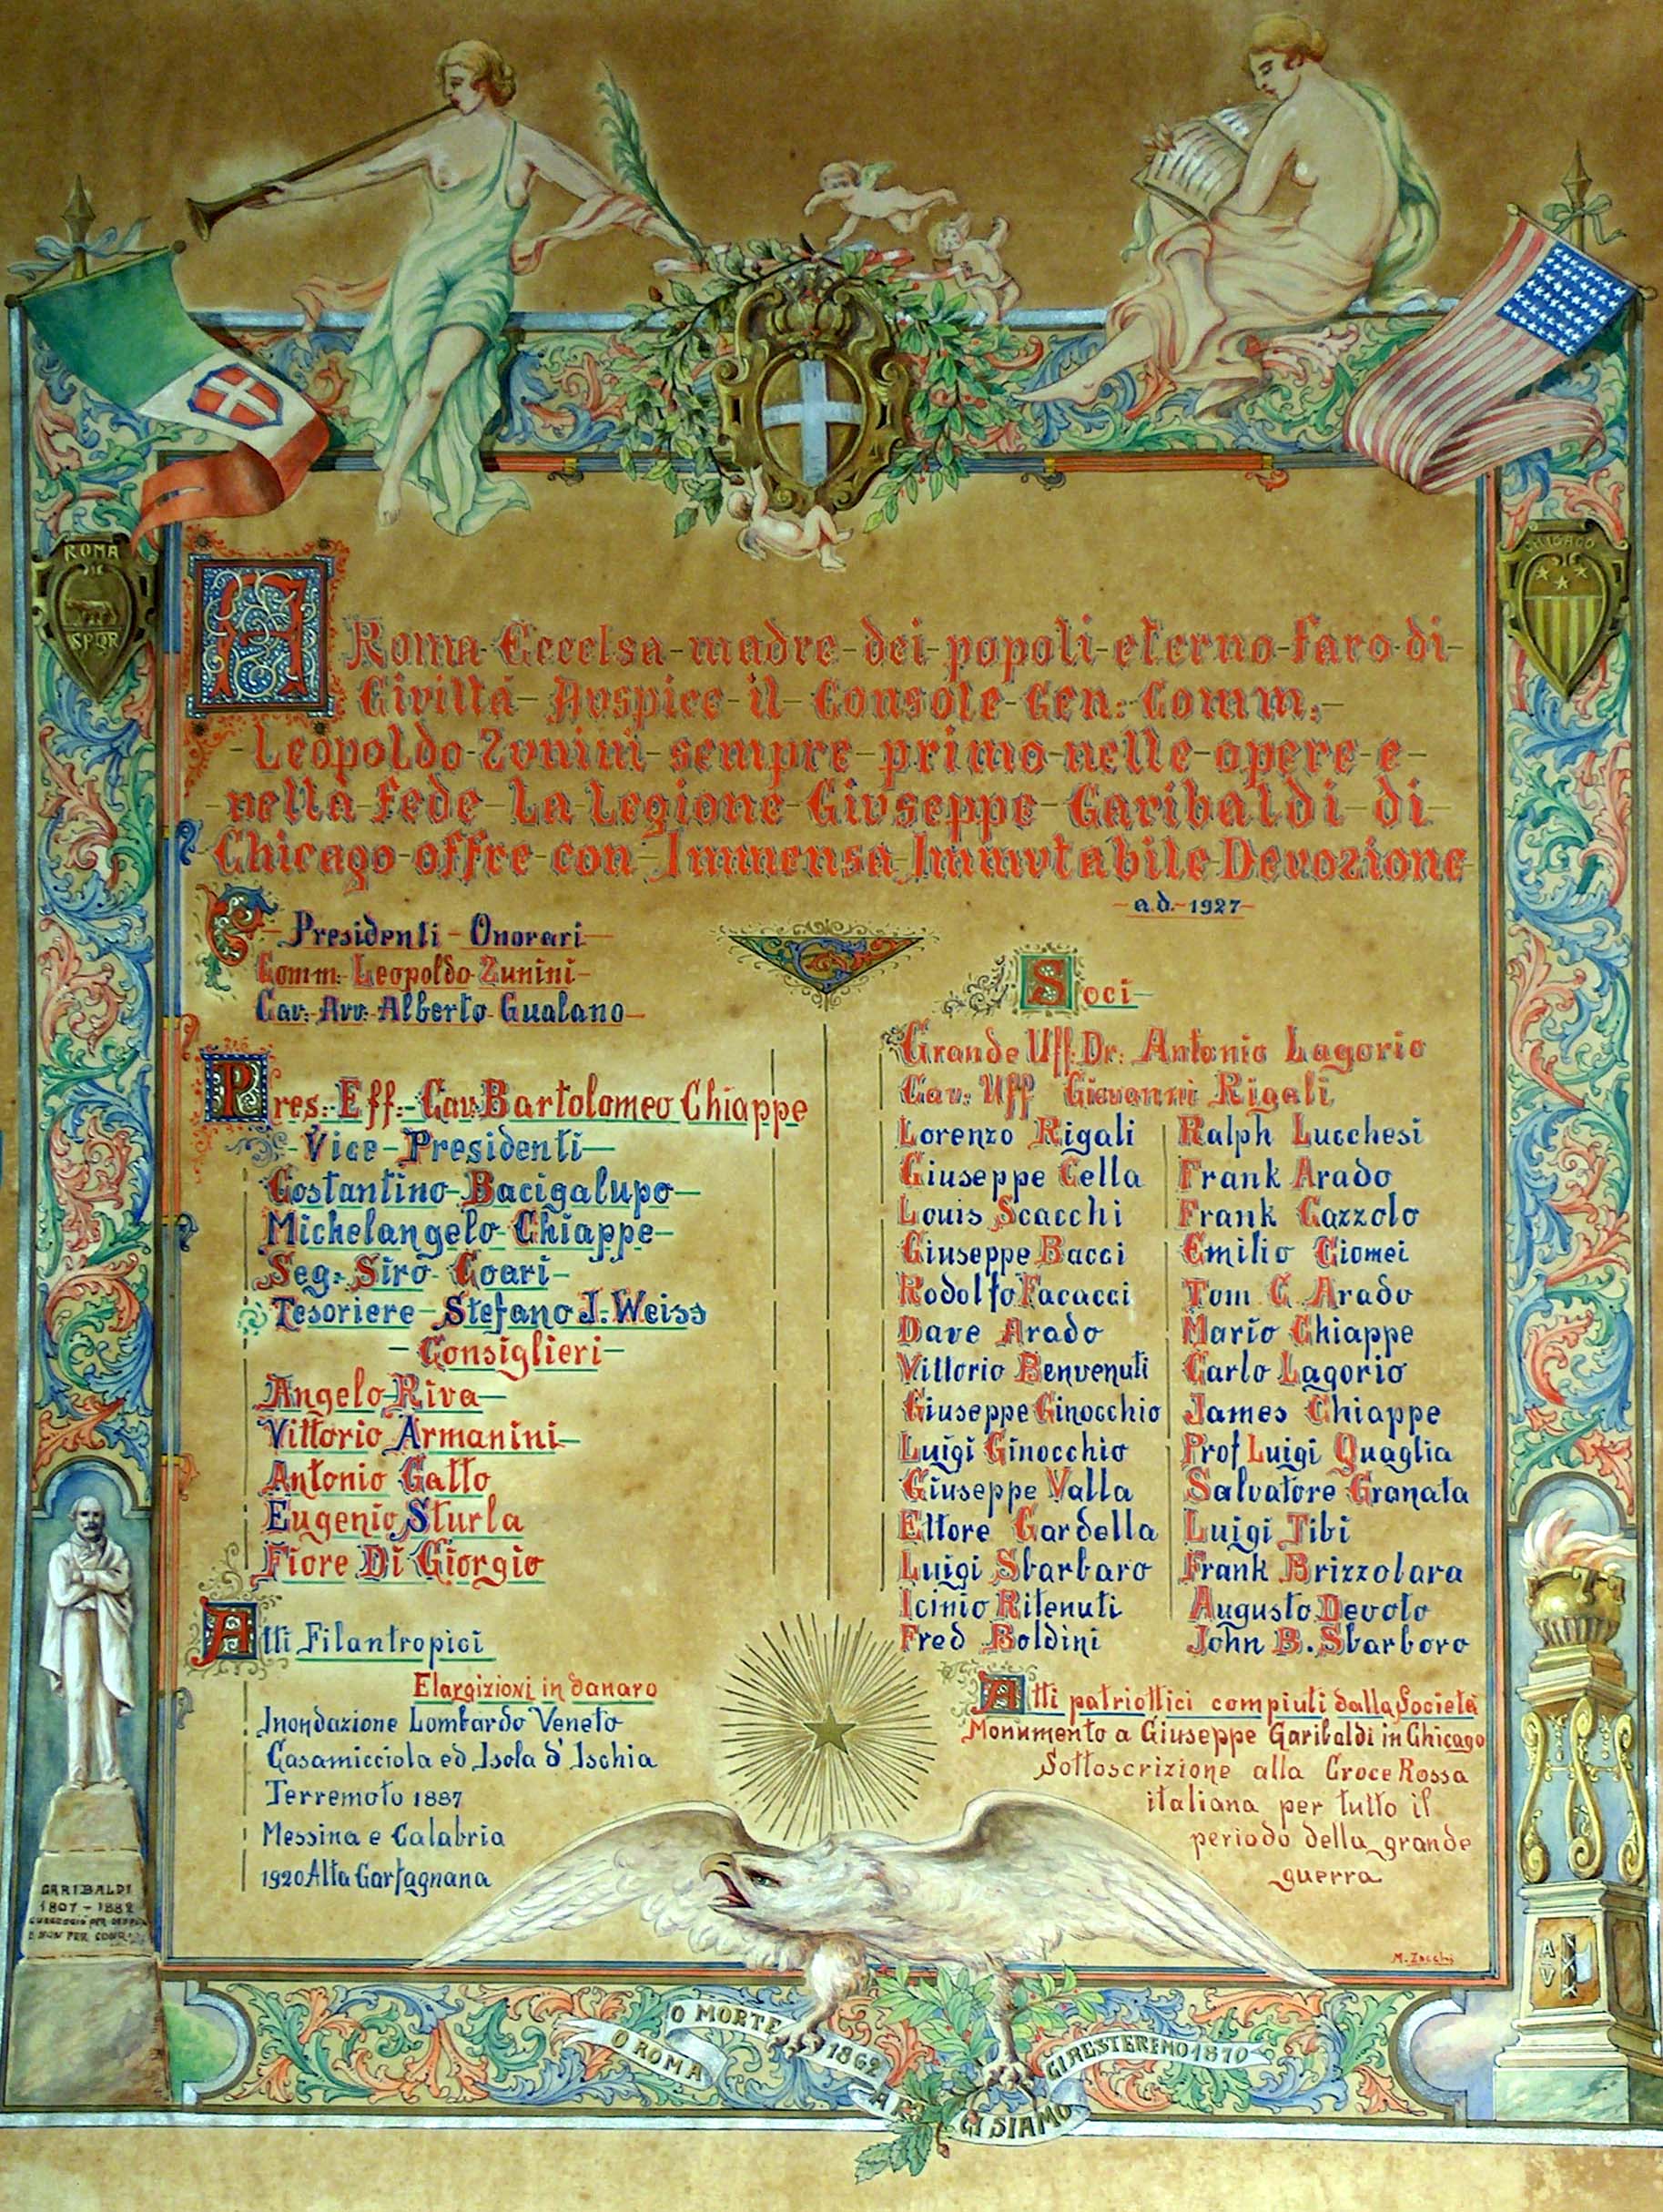 ROMA
SPQR
CHICAGO
A Roma Eccelsa madre dei popoli eterno faro di
Civiltá Auspice il Console Gen: Comm:
Leopoldo Zunini sempre primo nelle opere e
nella fede La Legione Giuseppe Garibaldi di
Chicago offre con Immensa Immutabile Devozione
a.d. 1927
Presidenti Onorari
Comm. Leopoldo Zunini
Cav. Avv. Alberto Gualano
Pres. Eff. Cav. Bartolomeo Chiappe
Vice-Presidenti
Costantino Bacigalupo
Michelangelo Chiappe
Seg. Siro Coari
Tesoriere Stefano J. Weiss
Consiglieri
Angelo Riva
Vittorio Armanini
Antonio Gatto
Eugenio Sturla
Fiore Di Giorgio
Atti Filantropici
Elargizioni in danaro
Inondazione Lombardo Veneto
Casamicciola ed Isola d'Ischia
Terremoto 1887
Messina e Calabria
1920 Alta Garfagnana
Soci
Grande Uff. Dr. Antonio Lagorio
Cav. Uff Giovanni Rigali
Lorenzo Rigali
Giuseppe Cella
Louis Scacchi
Giuseppe Bacci
Rodolfo Facacci
Dave Arado
Vittorio Benvenuti
Giuseppe Ginocchio
Luigi Ginocchio
Giuseppe Valla
Ettore Gardella
Luigi Sbarbaro
Icinio Ritenuti
Fred Boldini
Ralph Lucchesi
Frank Arado
Frank Cazzolo
Emilio Giomei
Tom C. Arado
Mario Chiappe
Carlo Lagorio
James Chiappe
Prof Luigi Quaglia
Salvatore Granata
Luigi Tibi
Frank Brizzolara
Augusto Devoto
John B. Sbarboro
Atti patriottici compiuti dalla Società
Monumento a Giuseppe Garibaldi in Chicago
Sottoscrizione alla Croce Rossa
italiana per tutto il
periodo della grande
guerra
GARIBALDI
1807-1882
E NON PER
AV
M. Zocchi
O ROMA
O MORTE
1862
CI SIAMO
CI RESTEREMO 1870